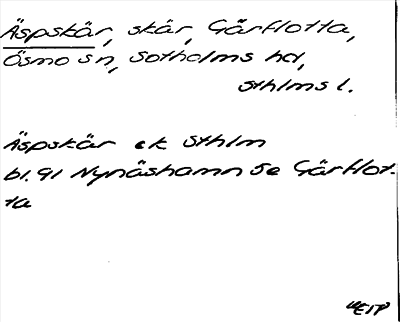 Äspskär, skär, Gärflotta,
Ösmo sn, Sotholms hd,
Sthlms l.
Äspskär ek Sthlm
bl. 91 Nynäshamn 5e Gärflot-
ta